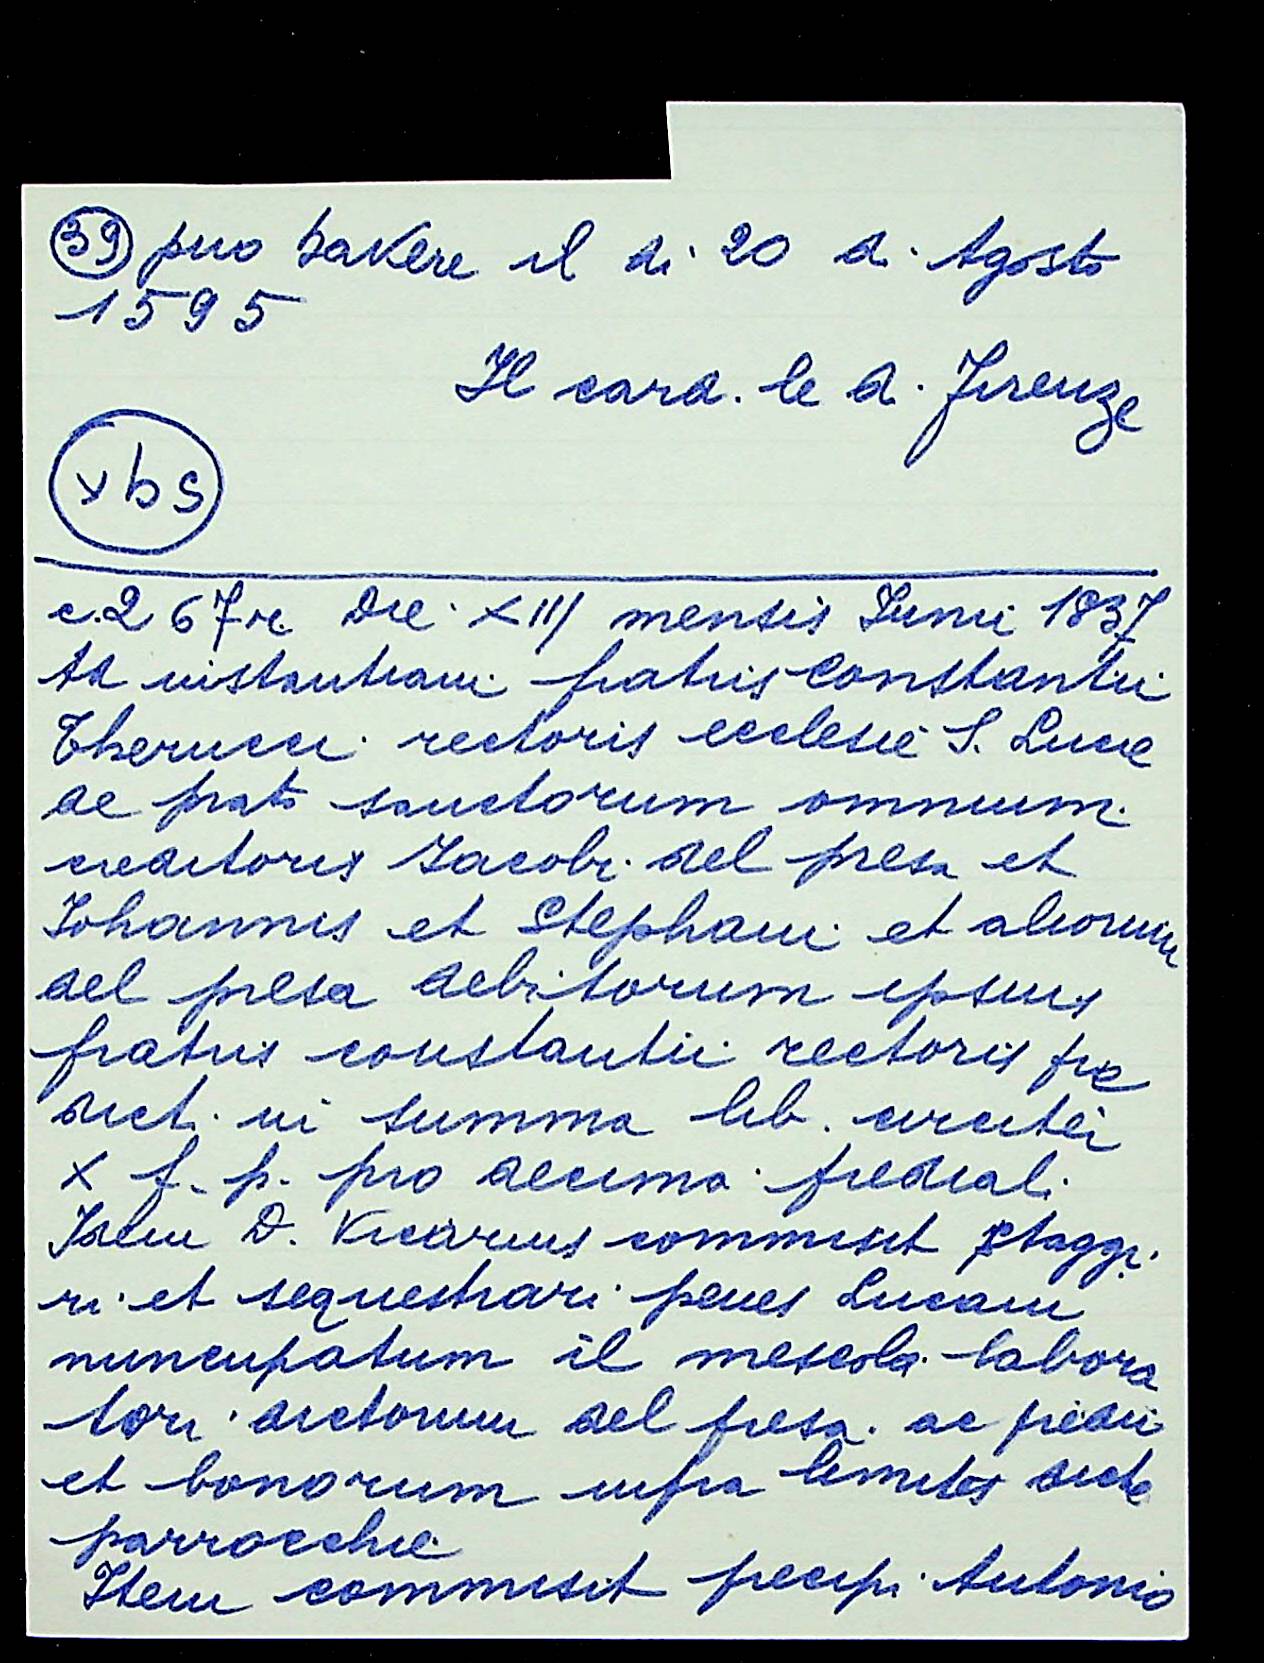 39 puo havere il di 20 di Agosto
1595
Il card. le di Firenze
xbs
c. 267r Die XIII mensis Iunii 1837
Ad instantiam fratris Constantii
Therucci rectoris ecclesie S. Lucie
de prato sanctorum omnium
creditoris Iacobi del presa et
Iohannis et Stephani et aliorum
del presa debitorum ipsius
fratris constantii rectoris pre
dicti in summa lib. circiter
X f. p. pro decima prediali
Idem D. Vicarius commisit staggi
ri et sequestrari penes Lucam
nuncupatum il mescola labora
tori dictorum del presa ac predii
et bonorum infra limites dicte
parrocchie
Item commisit precipi Antonio